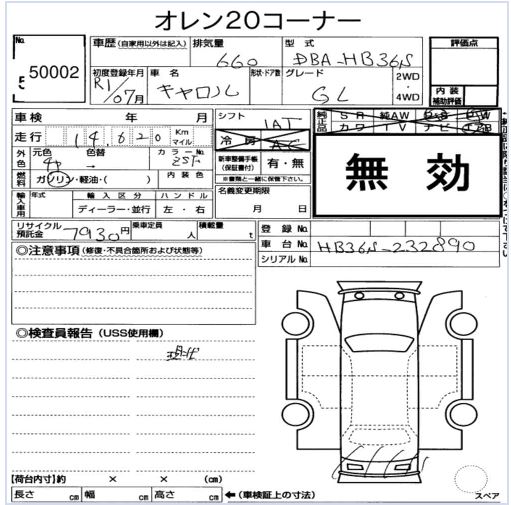 オレン20コーナー
No. 50002
車歴 (自家用以外は記入) 排気量 660 型式 DBA-HB36S 評価点
初度登録年月 R1/07月 車名 キャロル 形状・ドア数 グレード GL 2WD・4WD 内装補助評価
車検 年 月 シフト IAT 純正品 SR 純AW PS PW
走行 14,620 Km マイル 冷房 AC カワ TV ナビ
外色 元色 色替 カラーNo. ZSF 新車整備手帳(保証書付) 有・無
※書類と一緒に保管下さい。
無効
燃料 ガソリン・軽油・( ) 内装色 名義変更期限
輸入車用 年式 輸入区分 ハンドル
ディーラー・並行 左・右 月 日
リサイクル預託金 7930円 乗車定員 名 積載量 t 登録No.
車台No. HB36S-232890
シリアルNo.
◎注意事項 (修復・不具合箇所および状態等)
◎検査員報告 (USS使用欄)
現状
【荷台内寸】約 × × (cm)
長さ cm 幅 cm 高さ cm ←(車検証上の寸法)
スペア